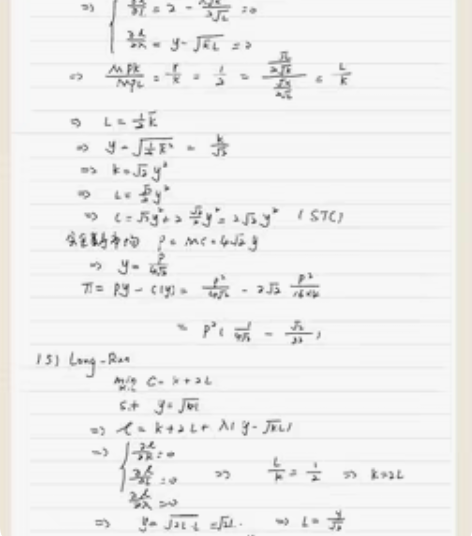 ⇒ { ∂L/∂L = 2 - λ√K/2√L = 0
∂L/∂λ = y - √KL = 0
⇒ MPK/MPL = r/k = 1/2 = (√L/2√K)/(√K/2√L) = L/K
⇒ L = 1/2 K
⇒ y = √(1/2 K²) = K/√2
⇒ K = √2 y²
⇒ L = √2/2 y²
⇒ C = √2 y² + 2 √2/2 y² = 2√2 y² (STC)
P = MC = 4√2 y
⇒ y = P/4√2
π = Py - C(y) = P²/4√2 - 2√2 P²/16×2
= P² ( 1/4√2 - √2/32 )
(5) Long-Run
min K.L C = K + 2L
s.t y = √KL
⇒ ℓ = K + 2L + λ( y - √KL )
⇒ { ∂ℓ/∂K = 0
∂ℓ/∂L = 0 ⇒ L/K = 1/2 ⇒ K = 2L
∂ℓ/∂λ = 0
⇒ y = √2L·L = √2L. ⇒ L = y/√2